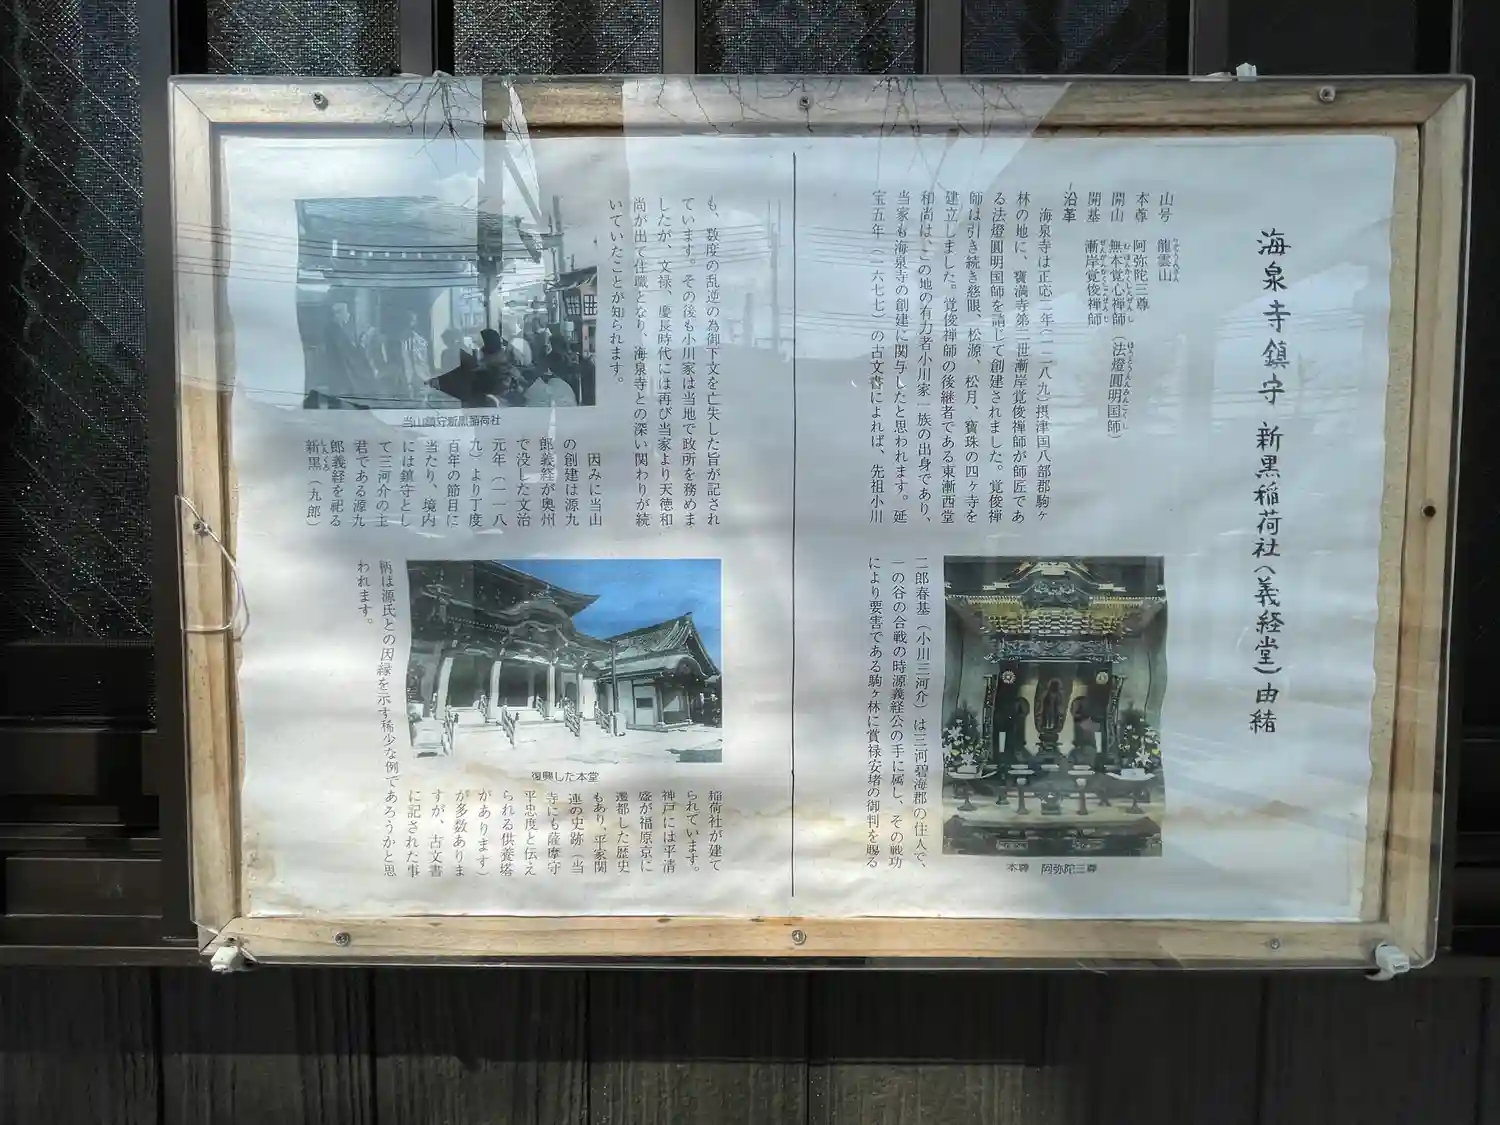 海泉寺鎮守 新黒稲荷社(義経堂)由緒
山号 龍雲山
本尊 阿弥陀三尊
開山 無本覚心禅師(法燈圓明国師)
開基 漸岸覚俊禅師
沿革
海泉寺は正応二年(一二八九)摂津国八部郡駒ヶ
林の地に、寶満寺第二世漸岸覚俊禅師が師匠であ
る法燈圓明国師を請じて創建されました。覚俊禅
師は引き続き慈眼、松源、松月、寶珠の四ヶ寺を
建立しました。覚俊禅師の後継者である東漸西堂
和尚は、この地の有力者小川家一族の出身であり、
当家も海泉寺の創建に関与したと思われます。延
宝五年(一六七七)の古文書によれば、先祖小川
二郎春基(小川三河介)は三河碧海郡の住人で、
一の谷の合戦の時源義経公の手に属し、その戦功
により要害である駒ヶ林に賞禄安堵の御判を賜る
本尊 阿弥陀三尊
も、数度の乱逆の為御下文を亡失した旨が記され
ています。その後も小川家は当地で政所を務めま
したが、文禄、慶長時代には再び当家より天徳和
尚が出て住職となり、海泉寺との深い関わりが続
いていたことが知られます。
当山鎮守新黒稲荷社
因みに当山
の創建は源九
郎義経が奥州
で没した文治
元年(一一八
九)より丁度
百年の節目に
当たり、境内
には鎮守とし
て三河介の主
君である源九
郎義経を祀る
新黒(九郎)
しんくろ
稲荷社が建て
られています。
神戸には平清
盛が福原京に
遷都した歴史
もあり、平家関
連の史跡(当
寺にも薩摩守
平忠度と伝え
られる供養塔
があります)
が多数ありま
すが、古文書
に記された事
柄は源氏との因縁を示す稀少な例であろうかと思
われます。
復興した本堂